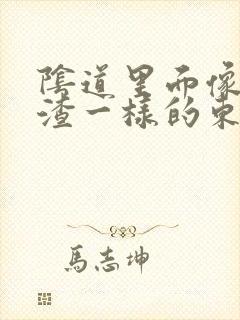 陰道里面像
渣一樣的東
馬志坤